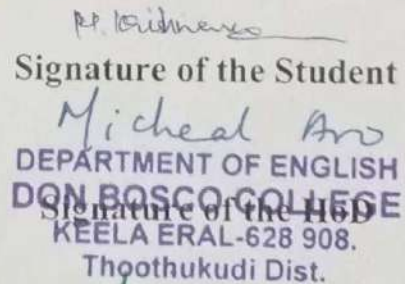 Signature of the Student
Micheal Aro
DEPARTMENT OF ENGLISH
DON BOSCO COLLEGE
Signature of the HoD
KEELA ERAL-628 908.
Thoothukudi Dist.